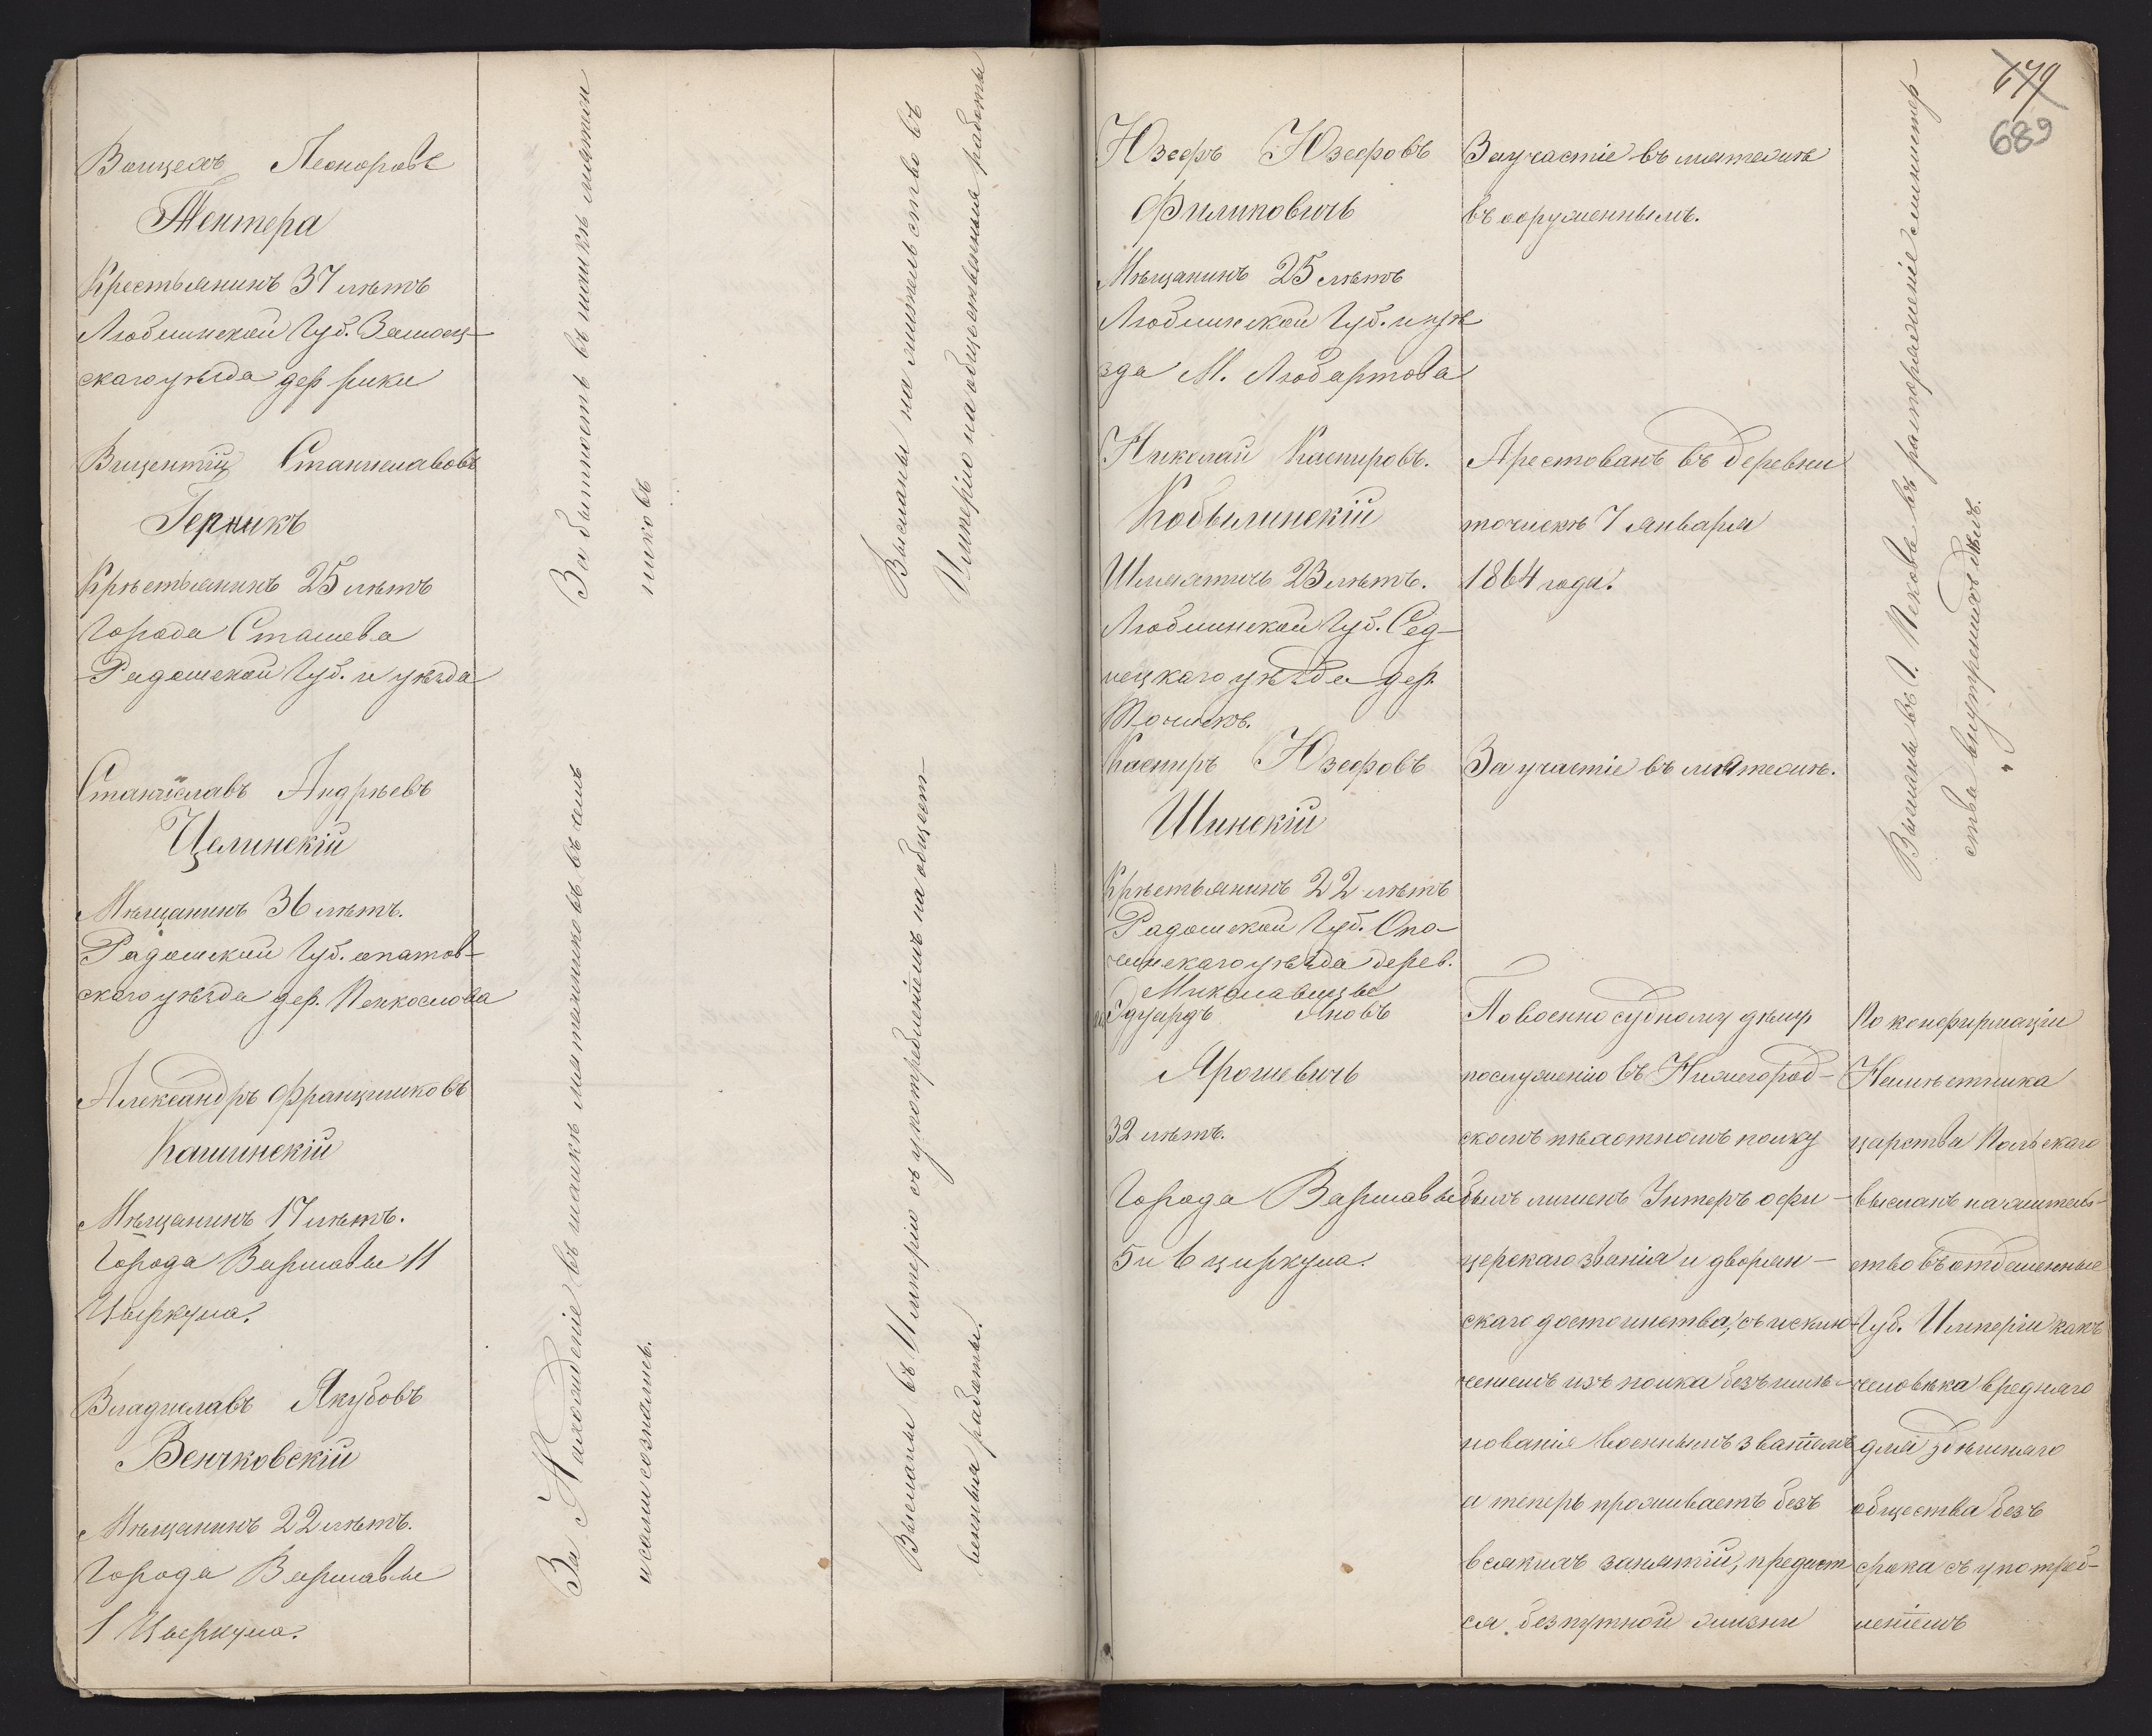 Войцехъ Леоноровъ
Тентера
Крестьянинъ 37 лѣтъ
Люблинской Губ. Замосц-
скаго уѣзда дер.
Вицентій Станиславовъ
Герникъ
Крѣстьянинъ 25 лѣтъ
Города Сташева
Радомской Губ. и уѣзда
Станиславъ Андрѣевъ
Целинскій
Мѣщанинъ 36 лѣтъ.
Радомской Губ. опатов-
скаго уѣзда дер. Пенкослова
Александръ Францишковъ
Кашинскій
Мѣщанинъ 17 лѣтъ.
Города Варшавы 11
Цыркула.
Владиславъ Якубовъ
Венчковскій
Мѣщанинъ 22 лѣтъ.
Города Варшавы
1 Цыркула.
За бытность въ шайкѣ мятеж
никовъ
За Нахожденіе въ шайкѣ мятежниковъ въ чемъ
и сами сознались.
Высланы на жительство въ
Имперію на общественныя работы
Высланы въ Имперію съ употребленіемъ на общест-
венныя работы.
679
689
Юзефъ Юзефовъ
Филиповичъ
Мѣщанинъ 25 лѣтъ
Люблинской Губ. и уѣ
зда М. Любартова
Николай Касперовъ.
Кобылинскій
Шляхтичъ 23 лѣтъ.
Люблинской Губ. Сед-
лецкаго уѣзда дер.
Точискъ.
Касперъ Юзефовъ
Шинскій
Крѣстьянинъ 22 лѣтъ
Радомской Губ. Опо-
чинскаго уѣзда дерев.
Миколаевицы
Эдуардъ Яновъ
Ярошевичъ
32 лѣтъ.
Города Варшавы
5 и 6 циркула.
За участіе въ мятежѣ
въ оруженнымъ.
Арестованъ въ деревни
точискѣ 7 января
1864 года.
За участіе въ мятежѣ.
По военно судному дѣлу
послуженію въ Нижегород-
скомъ пѣхотномъ полку
былъ лишенъ Унтеръ офи-
церскаго званія и дворян-
скаго достоинства, съ исклю-
ченіемъ изъ полка безъ имѣ-
нованія военнымъ званіемъ
а теперь проживаетъ безъ
всякихъ занятій, предает
ся безпутной жизни
Высланы въ Г. Псковъ въ распоряженіе министер-
ства внутреннихъ дѣлъ.
По конфирмаціи
Намѣстника
царства Польскаго
высланъ на житель-
ство въ отдаленныя
Губ. Имперіи какъ
человѣка вреднаго
для здѣшняго
общества безъ
срока съ употреб-
леніемъ